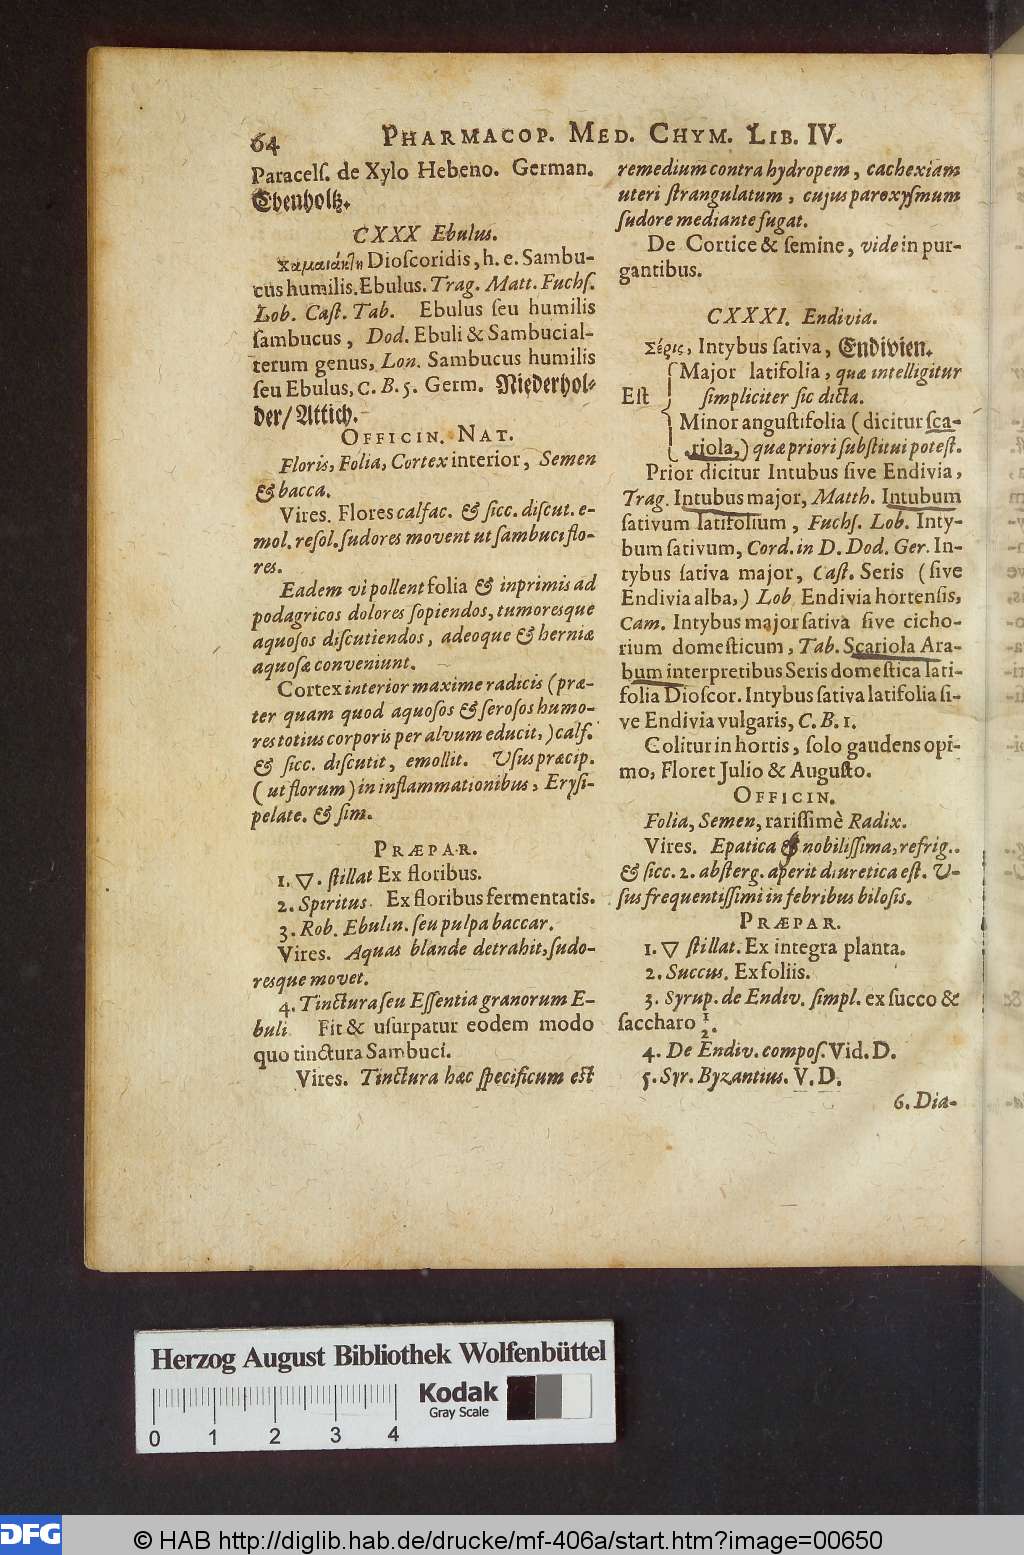 64
PHARMACOP. MED. CHYM. LIB. IV.
Paracelſ. de Xylo Hebeno. German.
Ebenholtz.
CXXX Ebulus.
χαμαιάκτη Dioſcoridis, h. e. Sambu-
cus humilis. Ebulus. Trag. Matt. Fuchſ.
Lob. Caſt. Tab. Ebulus ſeu humilis
ſambucus, Dod. Ebuli & Sambucial-
terum genus, Lon. Sambucus humilis
ſeu Ebulus, C. B. 5. Germ. Niederhol-
der/ Attich.
OFFICIN. NAT.
Floris, Folia, Cortex interior, Semen
& bacca.
Vires. Flores calfac. & ſicc. diſcut. e-
mol. reſol. ſudores movent ut ſambuci flo-
res.
Eadem vi pollent folia & inprimis ad
podagricos dolores ſopiendos, tumoresque
aquoſos diſcutiendos, adeoque & herniæ
aquoſæ conveniunt.
Cortex interior maxime radicis (præ-
ter quam quod aquoſos & ſeroſos humo-
res totius corporis per alvum educit,) calf.
& ſicc. diſcutit, emollit. Uſus præcip.
(ut florum) in inflammationibus, Eryſi-
pelate. & ſim.
PRÆPAR.
1. 🜄. ſtillat Ex floribus.
2. Spiritus. Ex floribus fermentatis.
3. Rob. Ebulin. ſeu pulpa baccar.
Vires. Aquas blande detrahit, ſudo-
resque movet.
4. Tinctura ſeu Eſſentia granorum E-
buli. Fit & uſurpatur eodem modo
quo tinctura Sambuci.
Vires. Tinctura hæc ſpecificum est
remedium contra hydropem, cachexiam
uteri ſtrangulatum, cujus paroxyſmum
ſudore mediante fugat.
De Cortice & ſemine, vide in pur-
gantibus.
CXXXI. Endivia.
Σέρις, Intybus ſativa, Endivien.
Major latifolia, quæ intelligitur
Eſt
ſimpliciter ſic dicta.
Minor anguſtifolia (dicitur ſca-
riola,) quæ priori ſubſtitui poteſt.
Prior dicitur Intubus ſive Endivia,
Trag. Intubus major, Matth. Intubum
ſativum latifolium, Fuchſ. Lob. Inty-
bum ſativum, Cord. in D. Dod. Ger. In-
tybus ſativa major, Caſt. Seris (ſive
Endivia alba,) Lob Endivia hortenſis,
Cam. Intybus major ſativa ſive cicho-
rium domeſticum, Tab. Scariola Ara-
bum interpretibus Seris domeſtica lati-
folia Dioſcor. Intybus ſativa latifolia ſi-
ve Endivia vulgaris, C. B. 1.
Colitur in hortis, ſolo gaudens opi-
mo, Floret Julio & Auguſto.
OFFICIN.
Folia, Semen, rariſſimè Radix.
Vires. Epatica & nobiliſſima, refrig..
& ſicc. 2. abſterg. aperit diuretica eſt. U-
ſus frequentiſſimi in febribus bilosis.
PRÆPAR.
1. 🜄 ſtillat. Ex integra planta.
2. Succus. Ex foliis.
3. Syrup. de Endiv. ſimpl. ex ſucco &
ſaccharo 1/2.
4. De Endiv. compoſ. Vid. D.
5. Syr. Byzantius. V. D.
6. Dia-
Herzog August Bibliothek Wolfenbüttel
Kodak
Gray Scale
0 1 2 3 4
DFG
© HAB http://diglib.hab.de/drucke/mf-406a/start.htm?image=00650